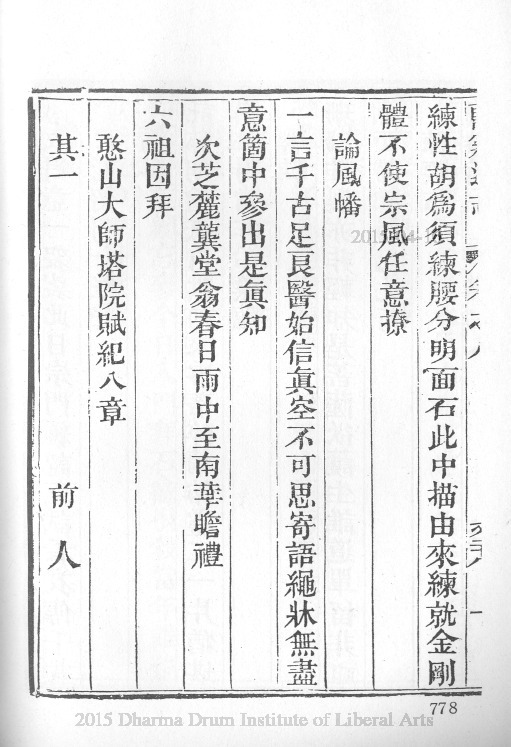 練性胡爲須練腰分明面石此中描由來練就金剛
體不使宗風任意撩
論風幡
一言千古足良醫始信眞空不可思寄語繩牀無盡
意箇中參出是眞知
次芝麓龔堂翁春日雨中至南華瞻禮
六祖因拜
憨山大師塔院賦紀八章
其一 前人
778
2015 Dharma Drum Institute of Liberal Arts